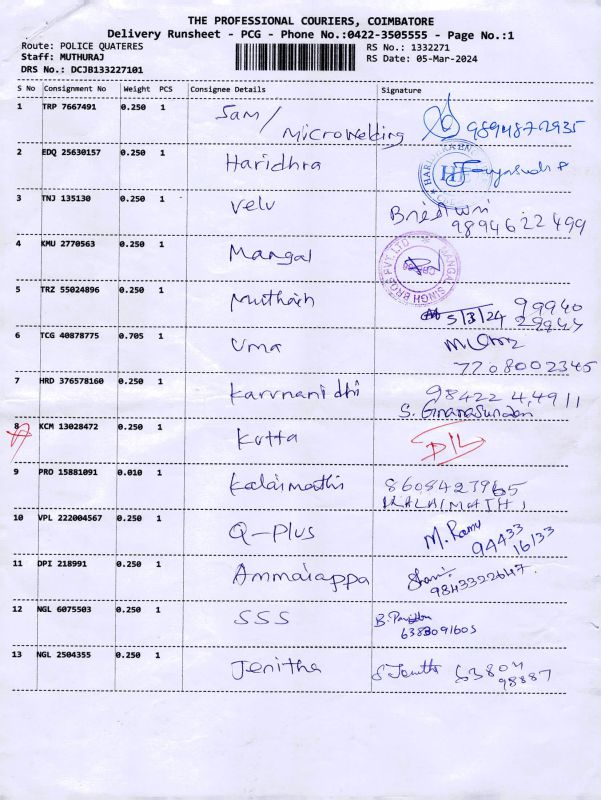 THE PROFESSIONAL COURIERS, COIMBATORE
Delivery Runsheet - PCG - Phone No.:0422-3505555 - Page No.:1
Route: POLICE QUATERES RS No.: 1332271
Staff: MUTHURAJ RS Date: 05-Mar-2024
DRS No.: DCJB133227101
S No Consignment No Weight PCS Consignee Details Signature
1 TRP 7667491 0.250 1 Sam/ Microwelding 9894872935
2 EDQ 25630157 0.250 1 Haridhra
3 TNJ 135130 0.250 1 Velu 9894622499
4 KMU 2770563 0.250 1 Mangal
MANGAL SINGH BROS PVT.LTD
5 TRZ 55024896 0.250 1 Muthaih 5/3/24 99940
29944
6 TCG 40878775 0.705 1 Uma
7208002345
7 HRD 376578160 0.250 1 Karunanidhi 984224,4911
S. Gnanasundari
8 KCM 13028472 0.250 1 Kutta D/L
9 PRO 15881091 0.010 1 Kalaimathi 8608427965
KALAIMATHI
10 VPL 222004567 0.250 1 Q-Plus M. Ramu 94433
16133
11 DPI 218991 0.250 1 Ammaiappa Shani
9843322647.
12 NGL 6075503 0.250 1 SSS
6383091605
13 NGL 2504355 0.250 1 Jenitha 63807
98887